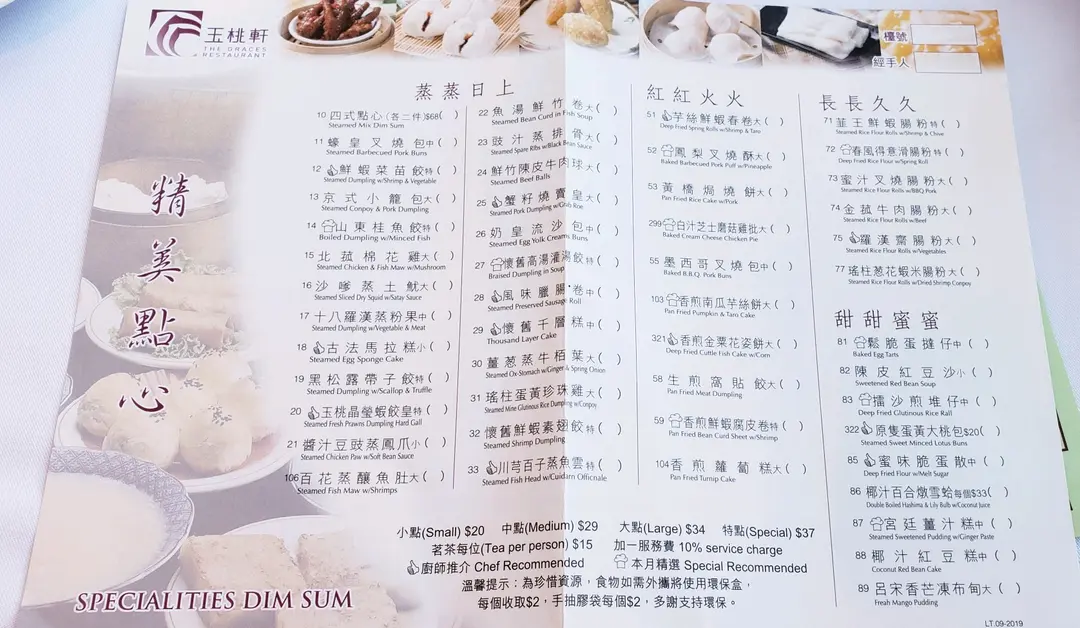 玉桃軒
THE GRACES
RESTAURANT
檯號
經手人
精美點心
SPECIALITIES DIM SUM
蒸蒸日上
10 四式點心(各二件)$68( )
Steamed Mix Dim Sum
11 蠔皇叉燒包中( )
Steamed Barbecued Pork Buns
12 鮮蝦菜苗餃特( )
Steamed Dumpling w/Shrimp & Vegetable
13 京式小籠包大( )
Steamed Conpoy & Pork Dumpling
14 山東桂魚餃特( )
Boiled Dumpling w/Minced Fish
15 北菰棉花雞大( )
Steamed Chicken & Fish Maw w/Mushroom
16 沙嗲蒸土魷大( )
Steamed Sliced Dry Squid w/Satay Sauce
17 十八羅漢蒸粉果中( )
Steamed Dumpling w/Vegetable & Meat
18 古法馬拉糕小( )
Steamed Egg Sponge Cake
19 黑松露帶子餃特( )
Steamed Dumpling w/Scallop & Truffle
20 玉桃晶瑩蝦餃皇特( )
Steamed Fresh Prawns Dumpling Hard Gall
21 醬汁豆豉蒸鳳爪小( )
Steamed Chicken Paw w/Soft Bean Sauce
106 百花蒸釀魚肚大( )
Steamed Fish Maw w/Shrimps
22 魚湯鮮竹卷大( )
Steamed Bean Curd in Fish Soup
23 豉汁蒸排骨大( )
Steamed Spare Ribs w/Black Bean Sauce
24 鮮竹陳皮牛肉球大( )
Steamed Beef Balls
25 蟹籽燒賣皇大( )
Steamed Pork Dumpling w/Crab Roe
26 奶皇流沙包中( )
Steamed Egg Yolk Creamy Buns
27 懷舊高湯灌湯餃特( )
Braised Dumpling in Soup
28 風味臘腸卷中( )
Steamed Preserved Sausage Roll
29 懷舊千層糕中( )
Thousand Layer Cake
30 薑葱蒸牛栢葉大( )
Steamed Ox-Stomach w/Ginger & Spring Onion
31 瑤柱蛋黃珍珠雞大( )
Steamed Mine Glutinous Rice Dumpling w/Conpoy
32 懷舊鮮蝦素翅餃特( )
Steamed Shrimp Dumpling
33 川芎百子蒸魚雲特( )
Steamed Fish Head w/Cuidarn Officnale
紅紅火火
51 芋絲鮮蝦春卷大( )
Deep Fried Spring Rolls w/Shrimp & Taro
52 鳳梨叉燒酥大( )
Baked Barbecued Pork Puff w/Pineapple
53 黃橋焗燒餅大( )
Pan Fried Rice Cake w/Pork
299 白汁芝士磨菇雞批大( )
Baked Cream Cheese Chicken Pie
55 墨西哥叉燒包中( )
Baked B.B.Q. Pork Buns
103 香煎南瓜芋絲餅大( )
Pan Fried Pumpkin & Taro Cake
321 香煎金粟花姿餅大( )
Deep Fried Cuttle Fish Cake w/Corn
58 生煎窩貼餃大( )
Pan Fried Meat Dumpling
59 香煎鮮蝦腐皮卷特( )
Pan Fried Bean Curd Sheet w/Shrimp
104 香煎蘿蔔糕大( )
Pan Fried Turnip Cake
長長久久
71 韮王鮮蝦腸粉特( )
Steamed Rice Flour Rolls w/Shrimp & Chive
72 春風得意滑腸粉特( )
Deep Fried Rice Flour w/Spring Roll
73 蜜汁叉燒腸粉大( )
Steamed Rice Flour Rolls w/BBQ Pork
74 金菰牛肉腸粉大( )
Steamed Rice Flour Rolls w/Beef
75 羅漢齋腸粉大( )
Steamed Rice Flour Rolls w/Vegetables
77 瑤柱葱花蝦米腸粉大( )
Steamed Rice Flour Rolls w/Dried Shrimp Conpoy
甜甜蜜蜜
81 鬆脆蛋撻仔中( )
Baked Egg Tarts
82 陳皮紅豆沙小( )
Sweetened Red Bean Soup
83 擂沙煎堆仔中( )
Deep Fried Glutinous Rice Rall
322 原隻蛋黃大桃包$20( )
Steamed Sweet Minced Lotus Buns
85 蜜味脆蛋散中( )
Deep Fried Flour w/Melt Sugar
86 椰汁百合燉雪蛤每個$33( )
Double Boiled Hashima & Lily Bulb w/Coconut Juice
87 宮廷薑汁糕中( )
Steamed Sweetened Pudding w/Ginger Paste
88 椰汁紅豆糕中( )
Coconut Red Bean Cake
89 呂宋香芒凍布甸大( )
Freah Mango Pudding
小點(Small) $20 中點(Medium) $29 大點(Large) $34 特點(Special) $37
茗茶每位(Tea per person) $15 加一服務費 10% service charge
廚師推介 Chef Recommended 本月精選 Special Recommended
溫馨提示：為珍惜資源，食物如需外攜將使用環保盒，
每個收取$2，手抽膠袋每個$2，多謝支持環保。
LT.09-2019